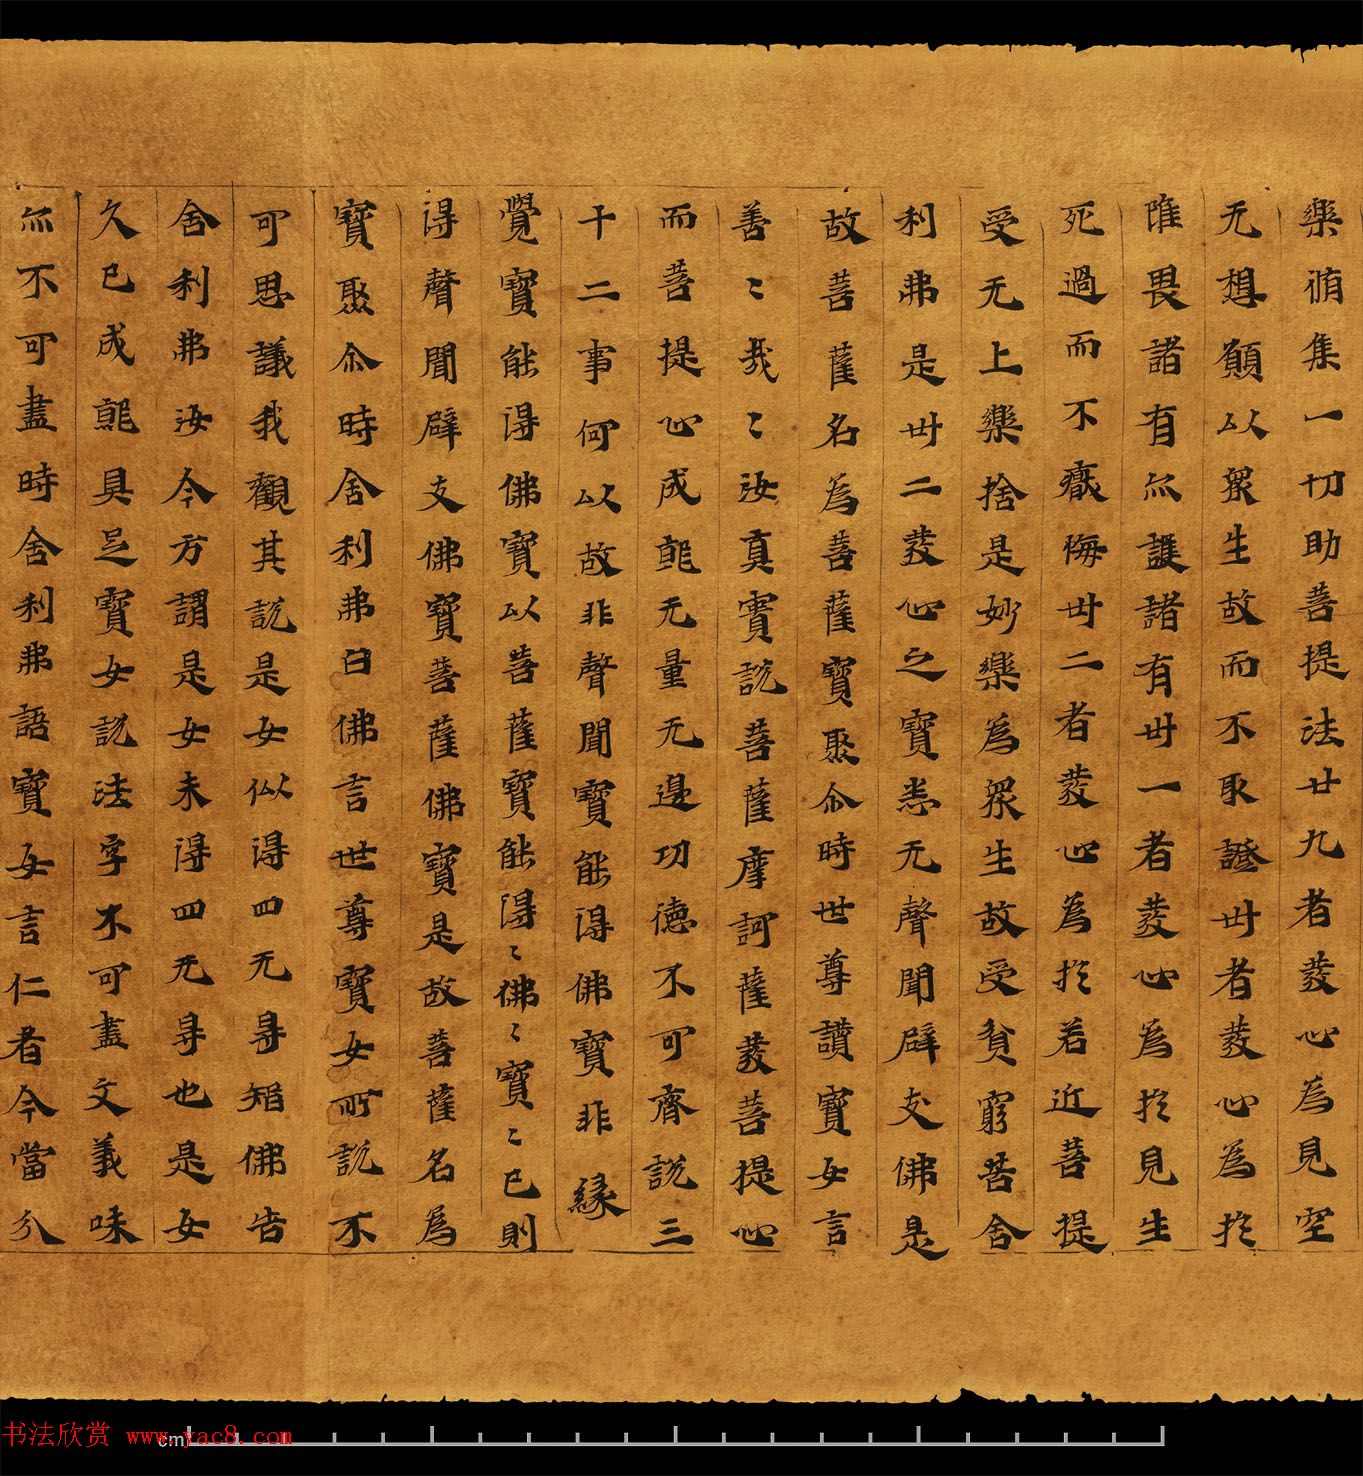 樂脩集一切助菩提法廿九者發心為見空
无想願以眾生故而不取證卅者發心為於
雖畏諸有亦護諸有卅一者發心為於見生
死過而不癈悔卅二者發心為於若近菩提
受无上樂捨是妙樂為眾生故受貧窮苦舍
利弗是卅二發心之寶悉无聲聞辟支佛是
故菩薩名為菩薩寶聚尒時世尊讚寶女言
善〻哉〻汝真實說菩薩摩訶薩發菩提心
而菩提心成就无量无邊功德不可齊說三
十二事何以故非聲聞寶能得佛寶非緣
覺寶能得佛寶以菩薩寶能得〻佛〻寶〻已則
得聲聞辟支佛寶菩薩佛寶是故菩薩名為
寶聚尒時舍利弗白佛言世尊寶女所說不
可思議我觀其說是女似得四无㝵智佛告
舍利弗汝今方謂是女未得四无㝵也是女
久已成就具足寶女說法字不可盡文義味
亦不可盡時舍利弗語寶女言仁者今當分
书法欣赏 www.yac8.com
cm